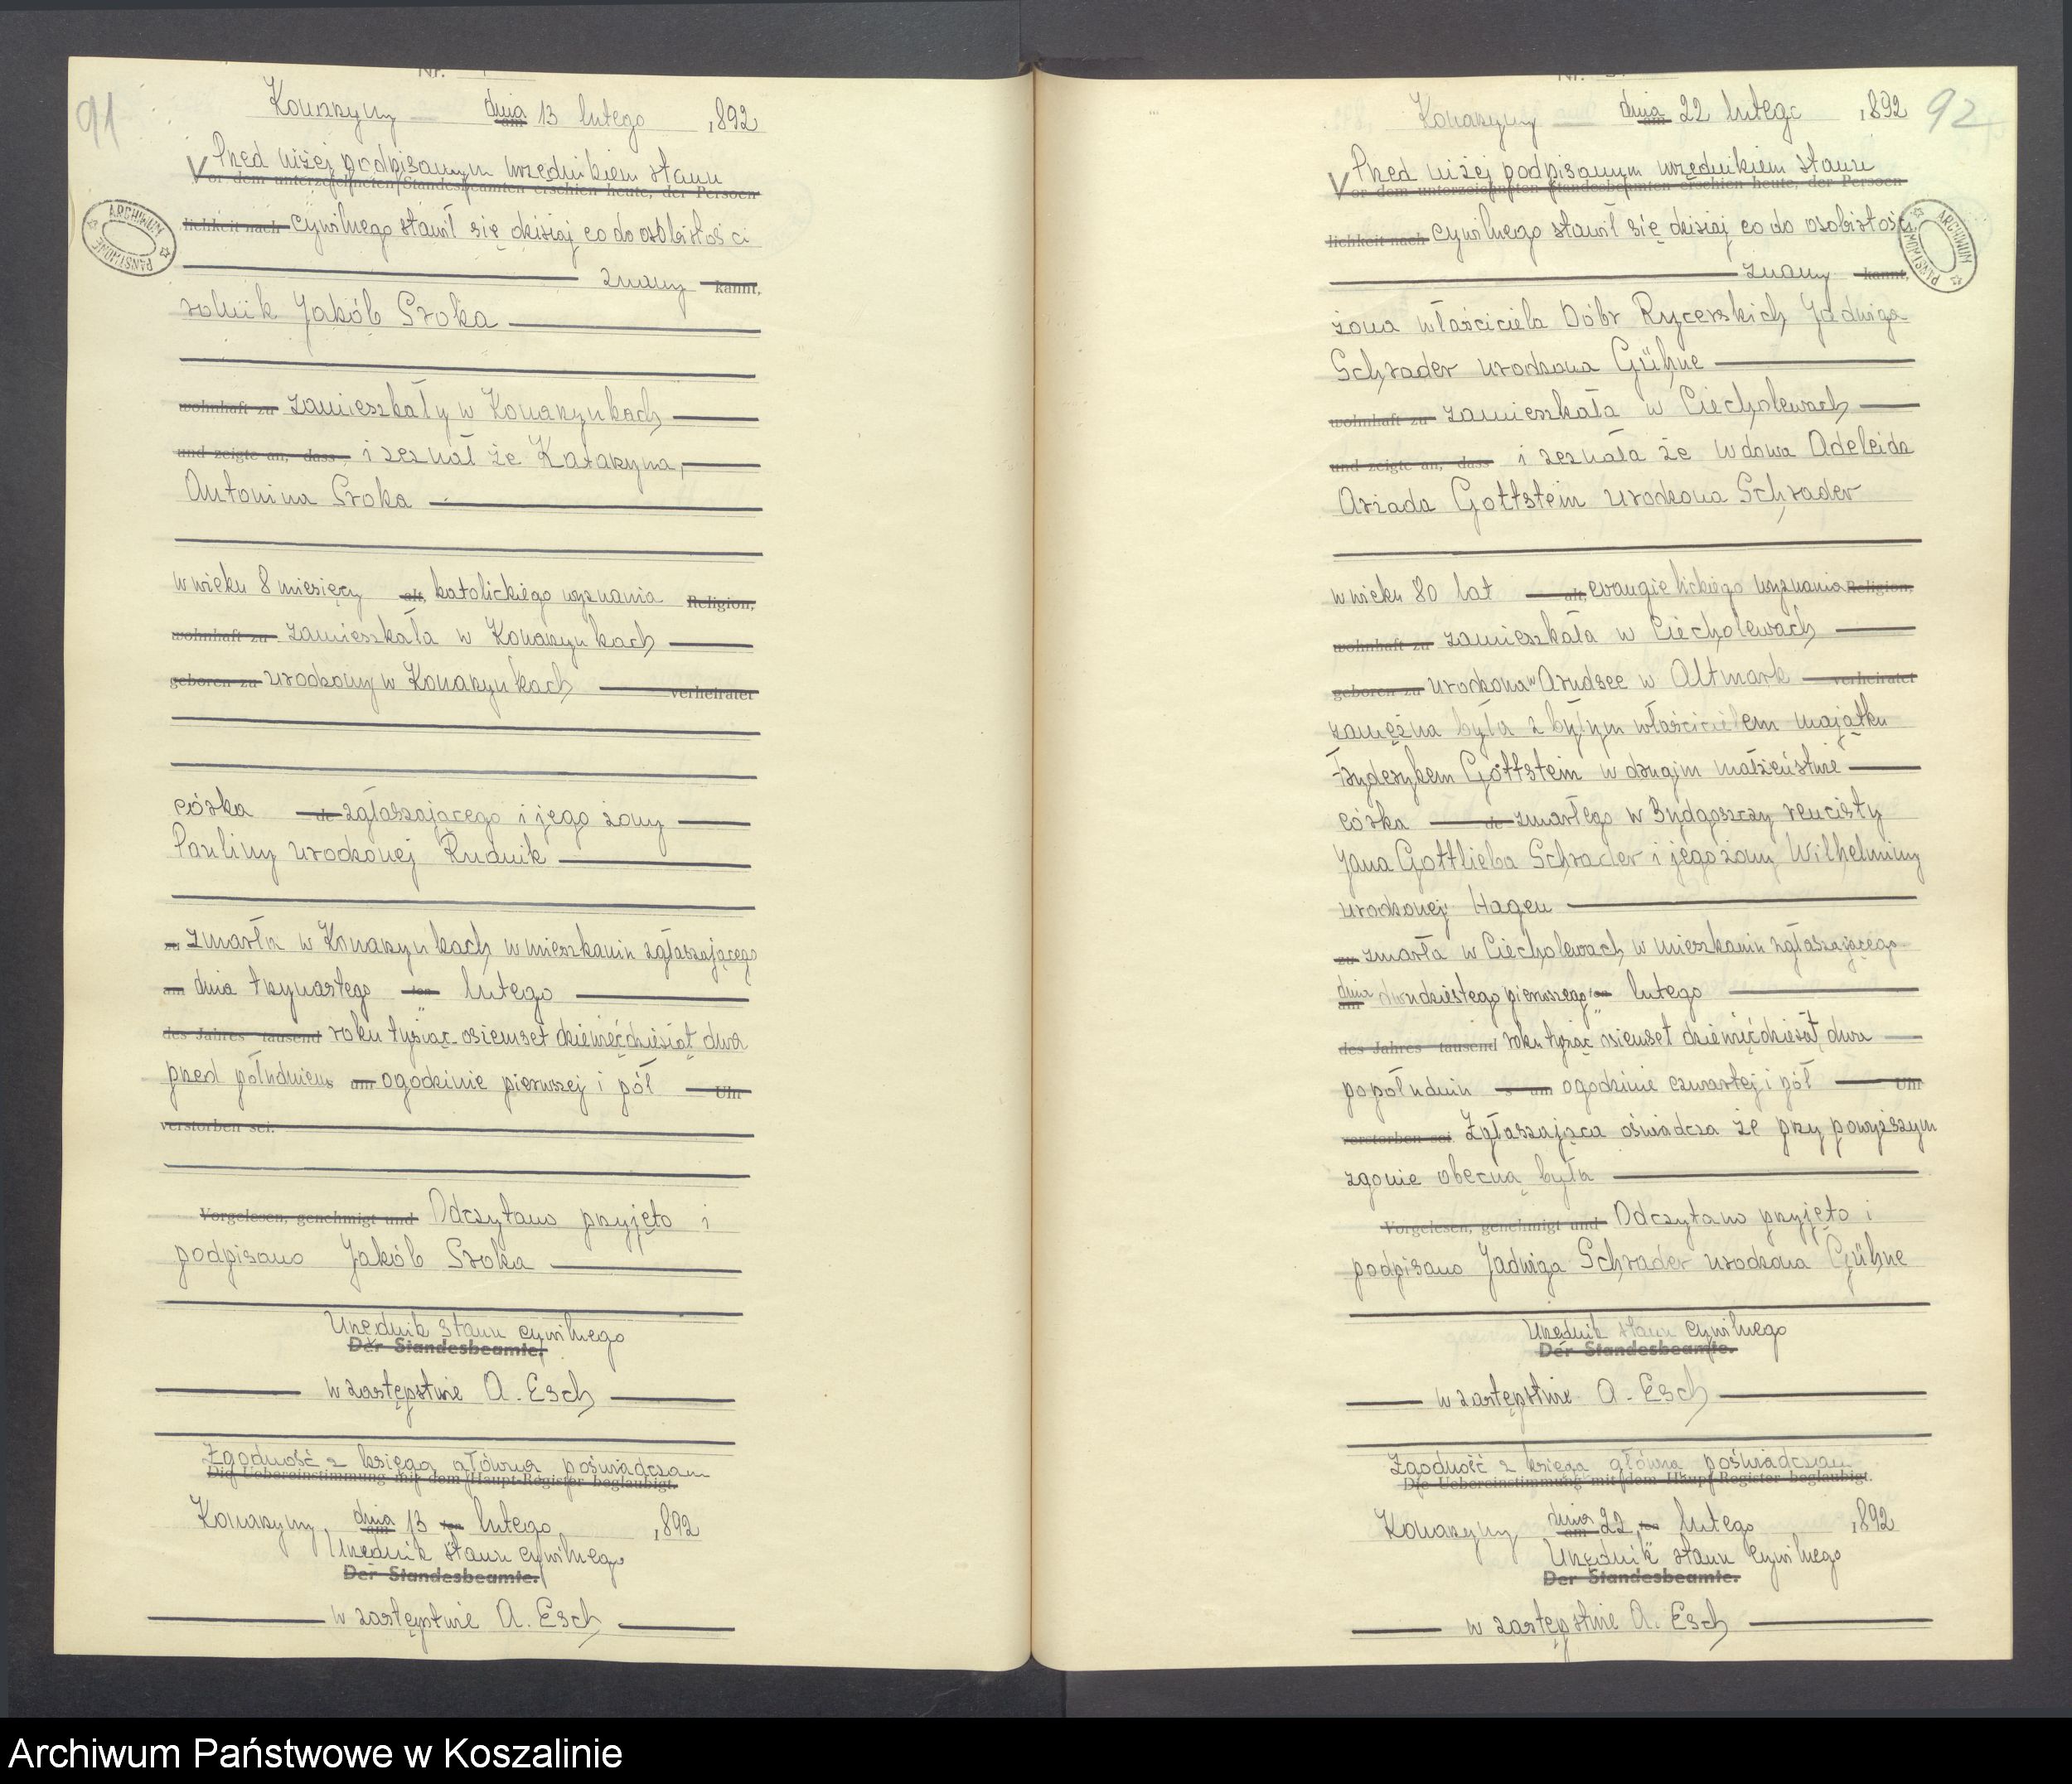 91
Konarzyny dnia 13 lutego 1892
Przed niżej podpisanym urzędnikiem stanu
Vor dem unterzeichneten Standesbeamten erschien heute, der Persoen
lichkeit nach cywilnego stawił się dzisiaj co do osobistości
znany kannt,
rolnik Jakób Sroka
wohnhaft zu zamieszkały w Konarzynkach
und zeigte an, dass i zeznał że Katarzyna,
Antonina Sroka
w wieku 8 miesięcy alt, katolickiego wyznania Religion,
wohnhaft zu zamieszkała w Konarzynkach
geboren zu urodzony w Konarzynkach verheiratet
córka de zgłaszającego i jego żony
Pauliny urodzonej Rudnik
zu zmarła w Konarzynkach w mieszkaniu zgłaszającego
am dnia trzynastego ten lutego
des Jahres tausend roku tysiąc osiemset dziewięćdziesiąt dwa
przed południem um o godzinie pierwszej i pół Uhr
verstorben sei.
Vorgelesen, genehmigt und Odczytano przyjęto i
podpisano Jakób Sroka
Urzędnik stanu cywilnego
Der Standesbeamte.
w zastępstwie A. Esch
Zgodność z księgą główną poświadczam
Die Uebereinstimmung mit dem Haupt-Register beglaubigt.
Konarzyny, dnia am 13 ten lutego 1892
Urzędnik stanu cywilnego
Der Standesbeamte.
w zastępstwie A. Esch
ARCHIWUM PAŃSTWOWE
92
Konarzyny dnia 22 lutego 1892
Przed niżej podpisanym urzędnikiem stanu
Vor dem unterzeichneten Standesbeamten erschien heute, der Persoen
lichkeit nach cywilnego stawił się dzisiaj co do osobistości
znany kannt,
żona właściciela Dóbr Rycerskich Jadwiga
Schrader urodzona Gühne
wohnhaft zu zamieszkała w Ciecholewach
und zeigte an, dass i zeznała że wdowa Adeleida
Ariada Gottstein urodzona Schrader
w wieku 80 lat alt, ewangielickiego wyznania Religion,
wohnhaft zu zamieszkała w Ciecholewach
geboren zu urodzona w Arndsee w Altmark verheiratet
zamężna była z byłym właścicielem majątku
Frydrykem Gottstein w drugim małżeństwie
córka de zmarłego w Bydgoszczy rencisty
Jana Gottlieba Schrader i jego żony Wilhelminy
urodzonej Hagen
zu zmarła w Ciecholewach w mieszkaniu zgłaszającego
dnia am dwudziestego pierwszego ten lutego
des Jahres tausend roku tysiąc osiemset dziewięćdziesiąt dwa
popołudniu s um o godzinie czwartej i pół Uhr
verstorben sei Zgłaszająca oświadcza że przy powyższym
zgonie obecną była
Vorgelesen, genehmigt und Odczytano przyjęto i
podpisano Jadwiga Schrader urodzona Gühne
Urzędnik stanu cywilnego
Der Standesbeamte.
w zastępstwie A. Esch
Zgodność z księgą główną poświadczam
Die Uebereinstimmung mit dem Haupt-Register beglaubigt.
Konarzyny dnia am 22 ten lutego 1892
Urzędnik stanu cywilnego
Der Standesbeamte.
w zastępstwie A. Esch
ARCHIWUM PAŃSTWOWE
Archiwum Państwowe w Koszalinie